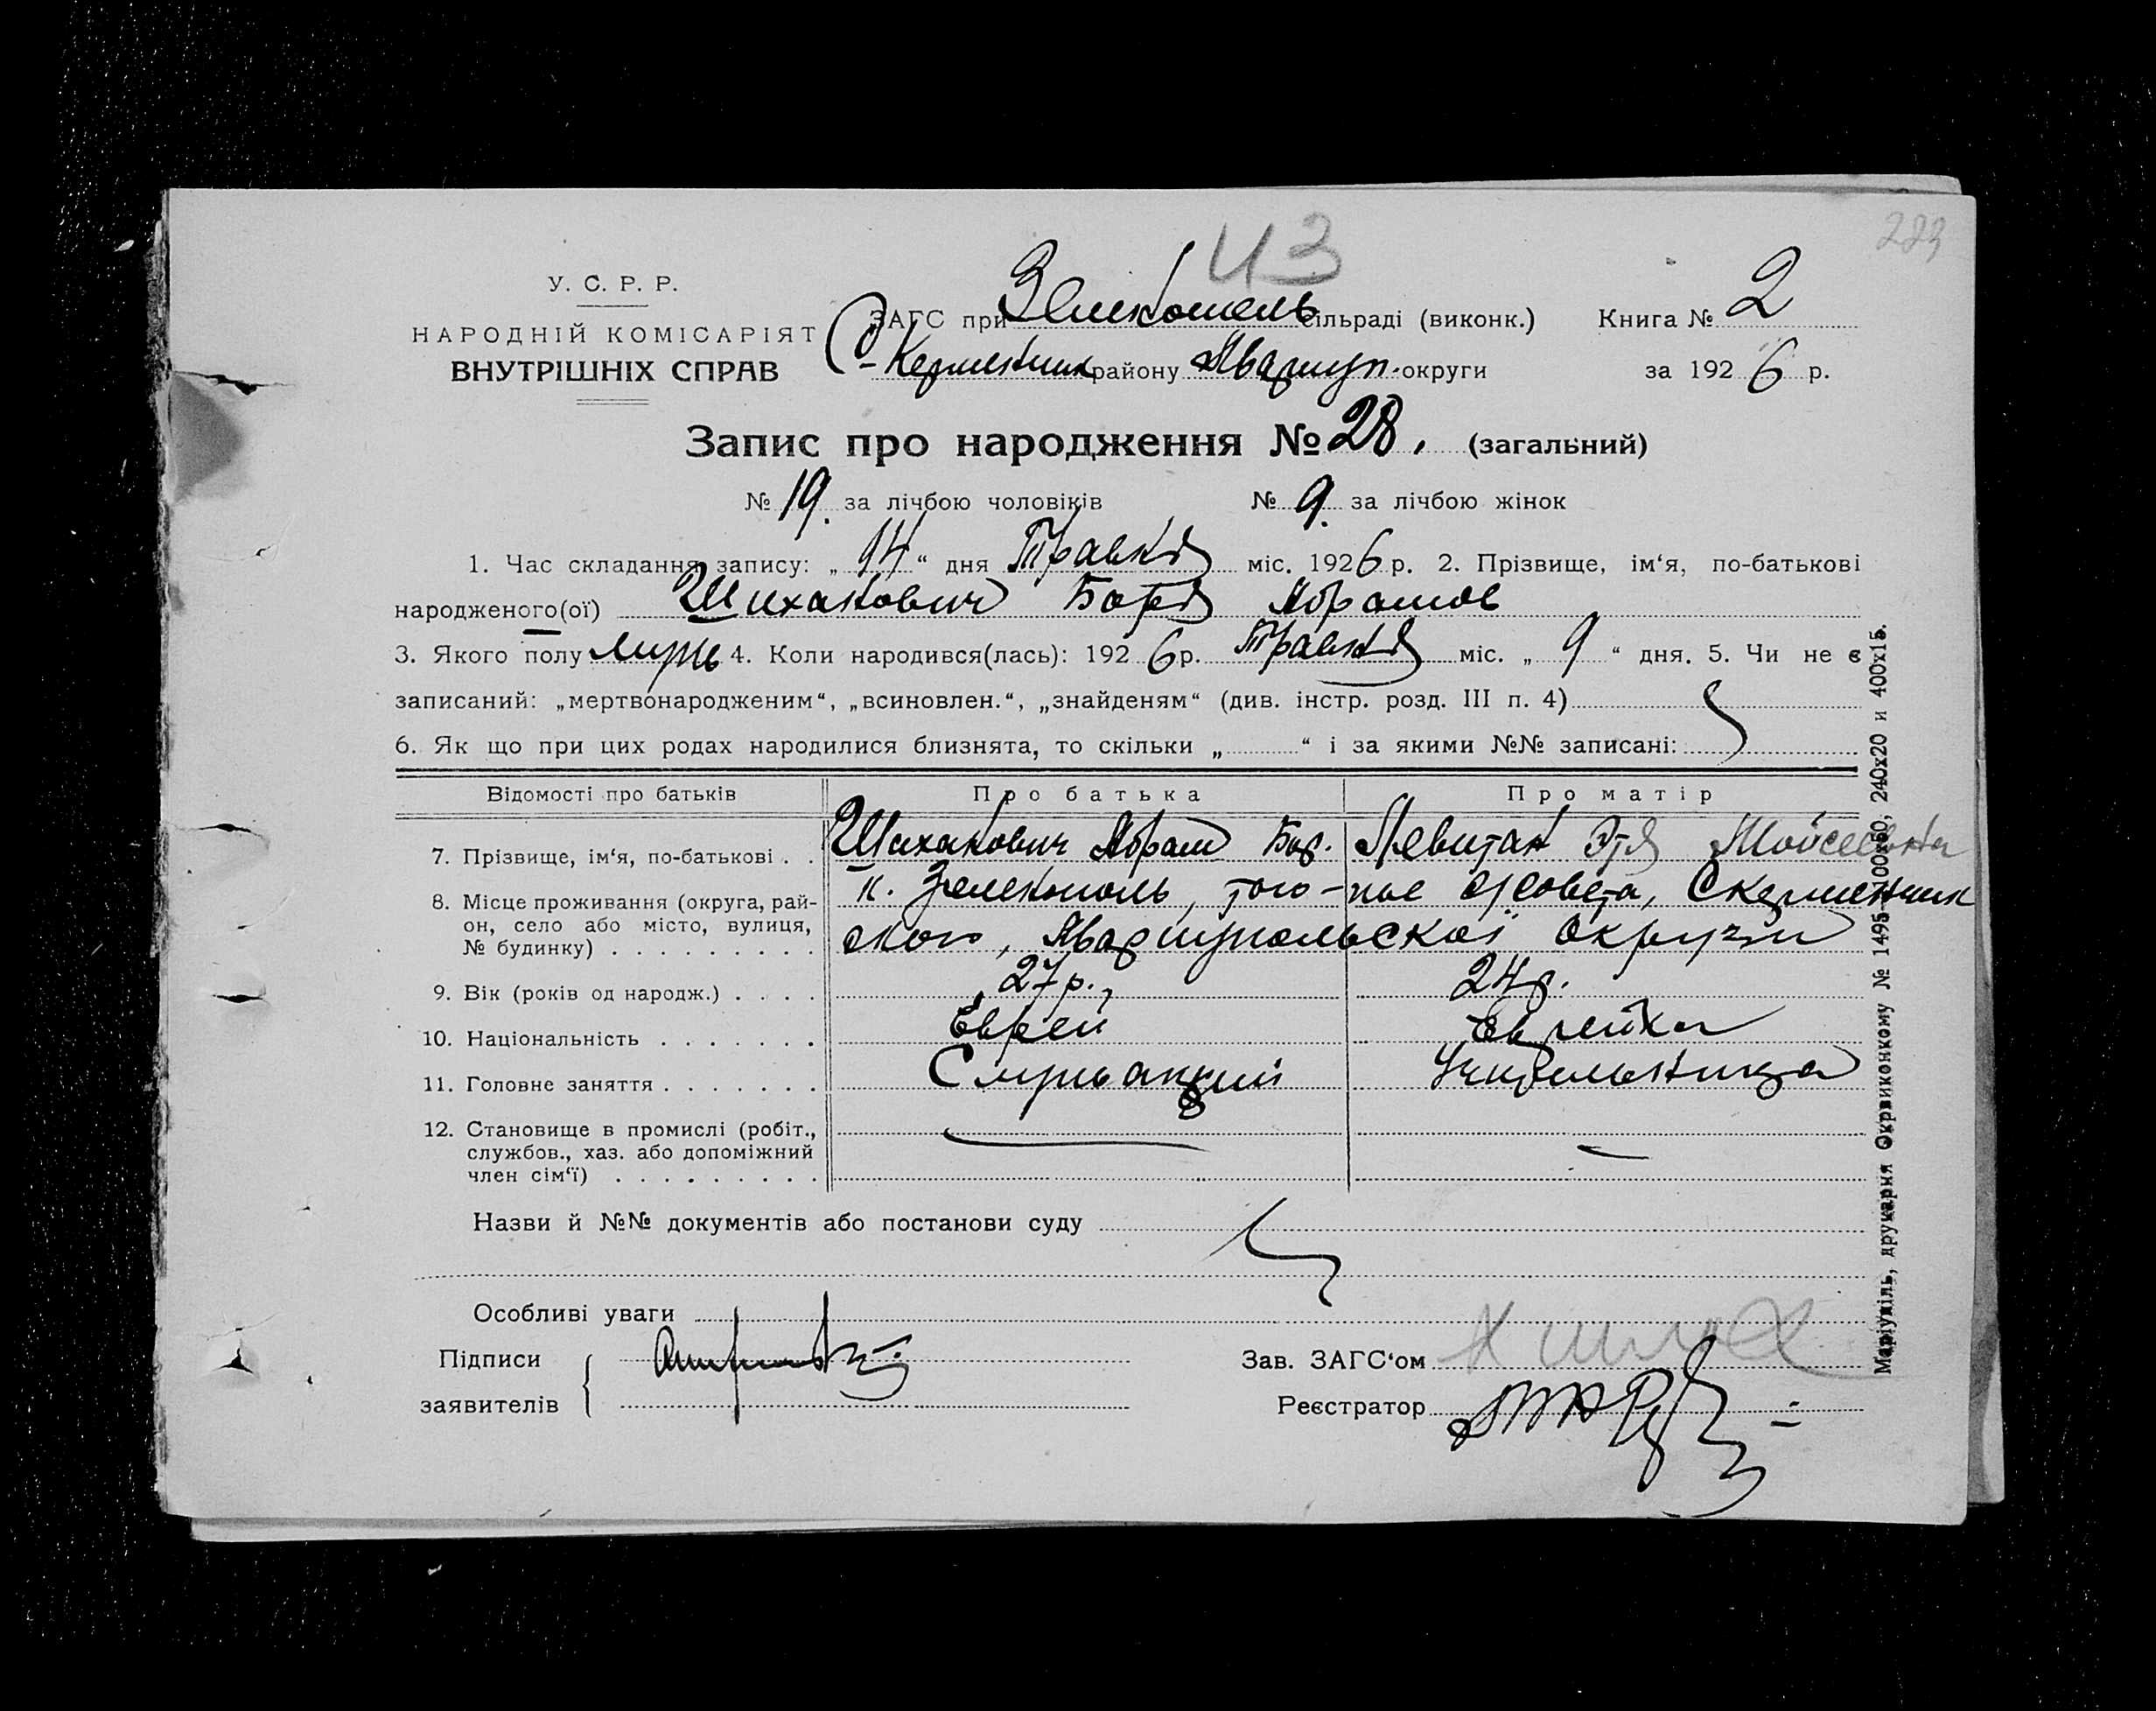 283
43
У. С. Р. Р.
НАРОДНІЙ КОМІСАРІЯТ
ВНУТРІШНІХ СПРАВ
ЗАГС при Зелекополь сільраді (виконк.) Книга № 2
С-Керменчик району Маріуп. округи за 1926 р.
Запис про народження № 28. (загальний)
№ 19. за лічбою чоловіків № 9. за лічбою жінок
1. Час складання запису: „14“ дня Травня міс. 1926 р. 2. Прізвище, ім‘я, по-батькові
народженого(ої) Шиханович Абрамов
3. Якого полу муж 4. Коли народився(лась): 1926 р. Травня міс. „9“ дня. 5. Чи не є
записаний: „мертвонародженим“, „всиновлен.“, „знайденям“ (див. інстр. розд. III п. 4)
6. Як що при цих родах народилися близнята, то скільки „ “ і за якими №№ записані:
Відомості про батьків Про батька Про матір
7. Прізвище, ім‘я, по-батькові . . Шиханович Абрам Бор. Левитан Этя Мойсеевна
8. Місце проживання (округа, рай- к. Зелекополь, того-же с/совета, Скерменчик
он, село або місто, вулиця, ского, Мариупольской Округи
№ будинку) . . . . . . . . .
9. Вік (років од народж.) . . . . 27 р. 24 р.
10. Національність . . . . . . . Еврей Еврейка
11. Головне заняття . . . . . . . Служащий Учительница
12. Становище в промислі (робіт.,
службов., хаз. або допоміжний
член сім‘ї) . . . . . . . . .
Назви й №№ документів або постанови суду
Особливі уваги
Підписи Зав. ЗАГС‘ом
заявителів Реєстратор
Маріупіль, друкарня Окрвиконкому № 1495—100x50, 240x20 и 400x15.